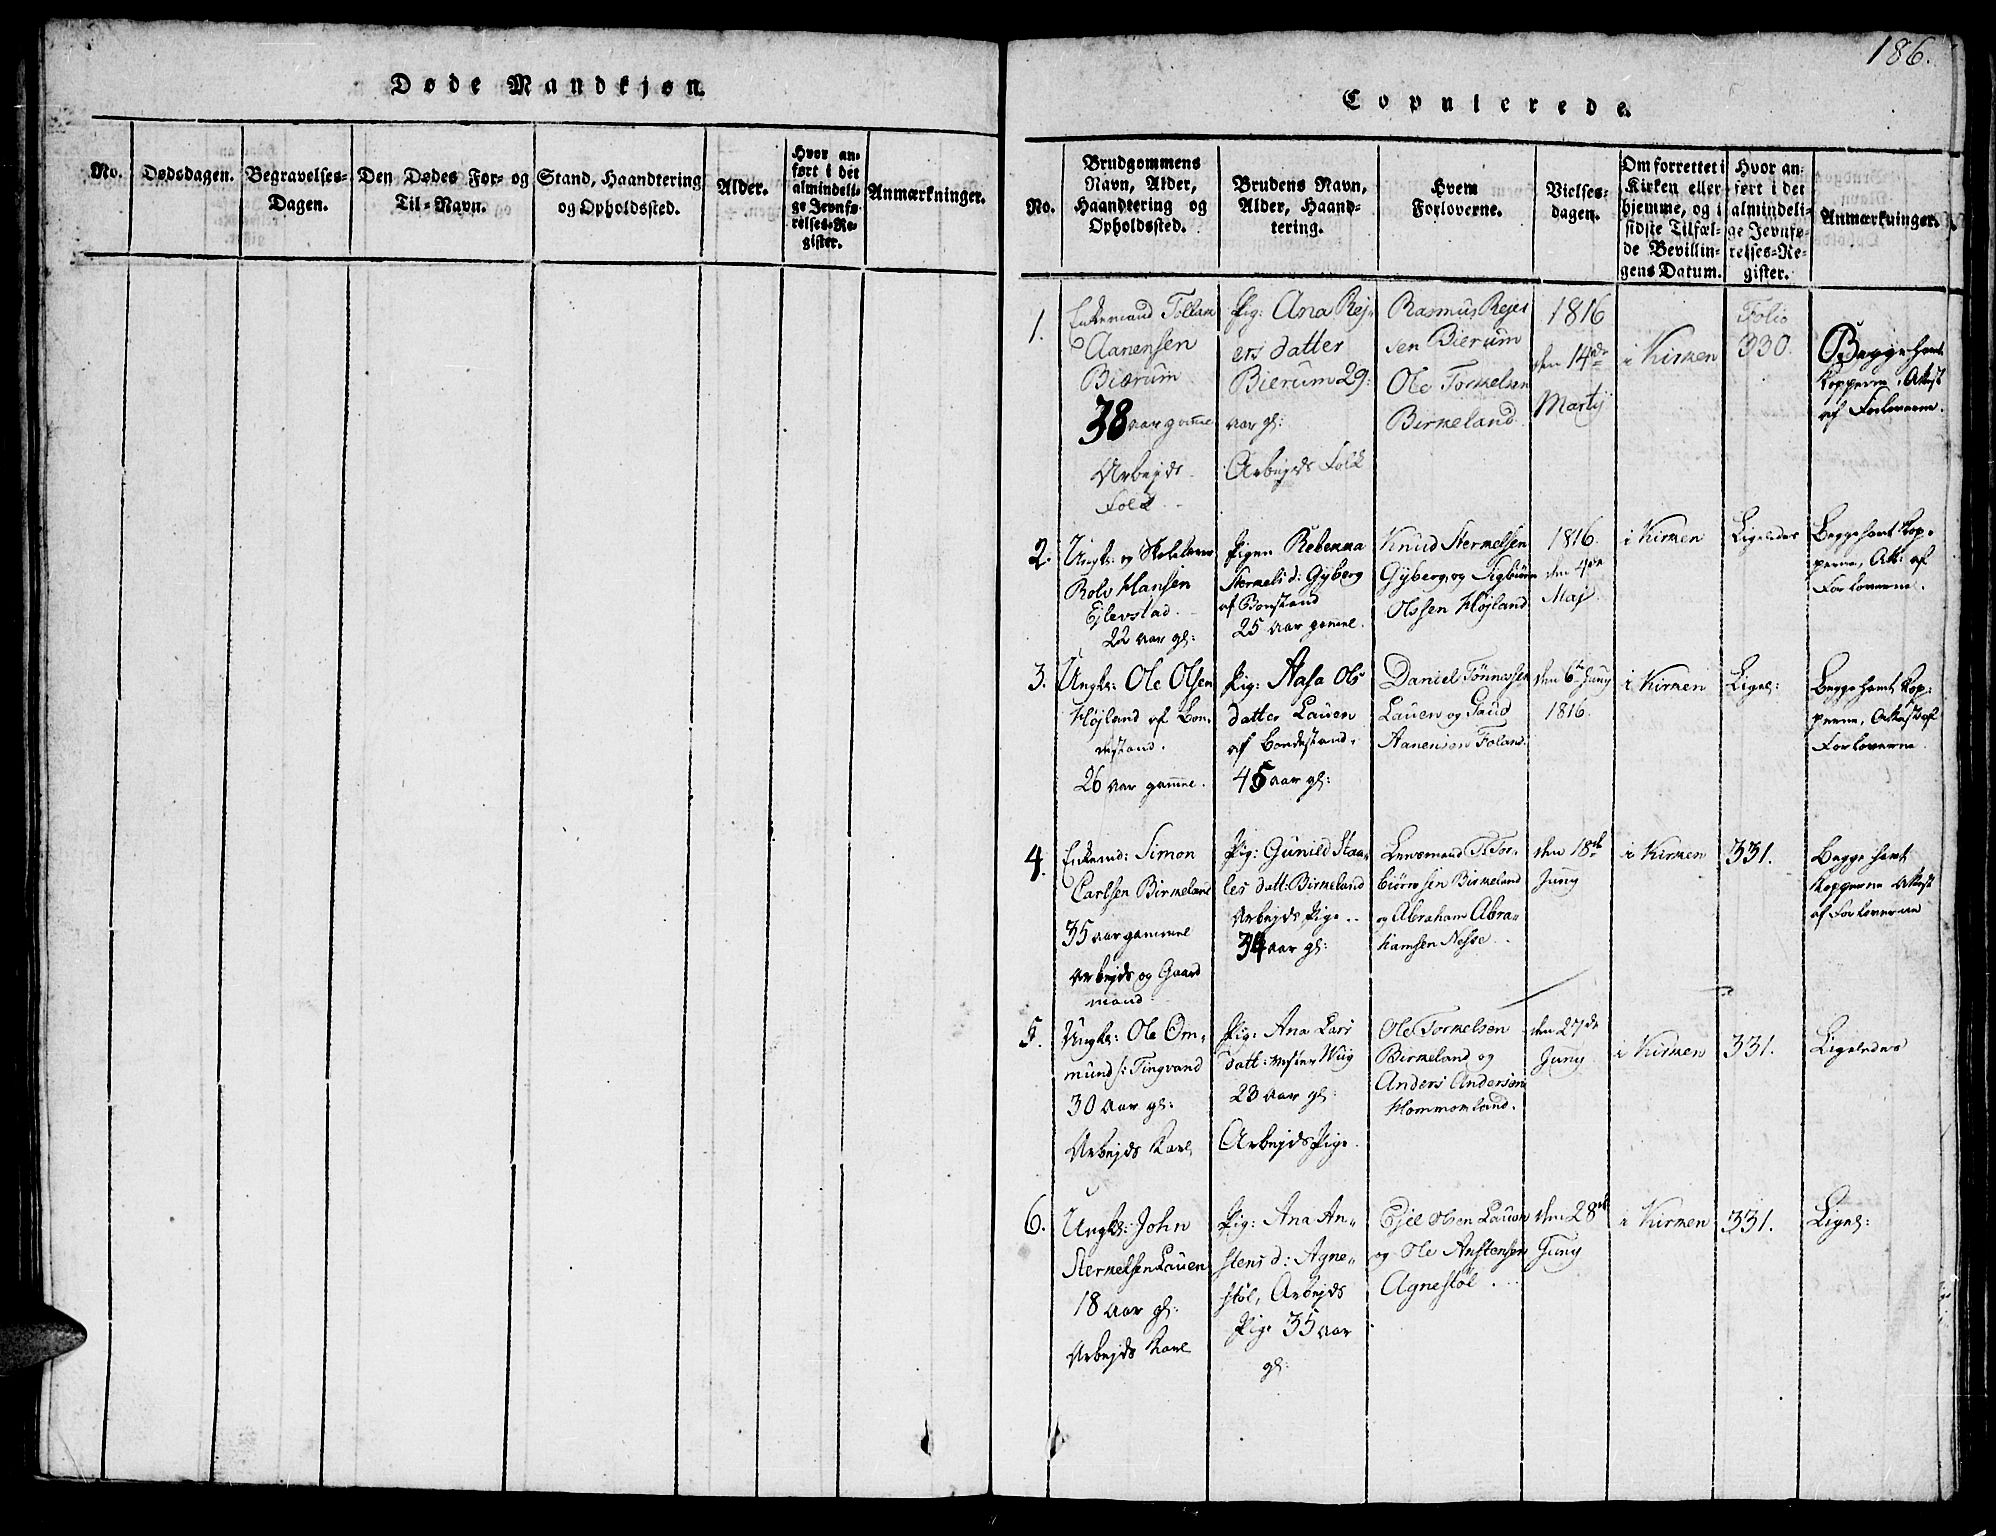 Døde Mandkjøn.
No.
Dødsdagen.
Begravelses-
Dagen.
Den Dødes For- og
Til-Navn.
Stand, Haandtering
og Opholdssted.
Alder.
Hvor an-
ført i det
almindeli-
ge Jevnfø-
relses-Re-
gister.
Anmærkninger.
186.
Copulerede.
No.
Brudgommens
Navn, Alder,
Haandtering og
Opholdssted.
Brudens Navn,
Alder, Haand-
tering.
Hvem
Forloverne.
Vielses-
dagen.
Om forrettet i
Kirken eller
hjemme, og i
sidste Tilfæl-
de Bevillin-
gens Datum.
Hvor an-
ført i det
almindeli-
ge Jevnfø-
relses-Re-
gister.
Anmærkninger.
1.
Enkemand Tollav
Aanensen
Bierum
38 aar gamel
Arbejds
Folk
Pig: Ana Rej-
ers datter
Bierum 29
aar gl:
Arbejds Folk
Rasmus Rejer
sen Bierum
Ole Tormelsen
Birkeland
1816
den 14de
Martij
i Kirken
Folio
330.
Begge havt
Kopperne, Attest
af Forloverne.
2.
Ungk: og Skoleholder
Rolv Hansen
Ejlevstad
22 aar gl:
Pigen Rebekka
Stermelsd: Gyberg
af Bonstand
25 aar gamel.
Knud Stermelsen
Gyberg, og Sigbiørn
Olssen Højland
1816.
den 4de
Maj
i Kirken
Ligeledes
Begge havt Kop-
perne, Att: af
Forloverne.
3.
Ungk: Ole Olsen
Højland af Bon-
destand.
26 aar gamel.
Pig: Aasa Ols
datter Lauen
af Bondestand.
45 aar gl:
Daniel Tønnessen
Lauen og Gaud
Aanensen Foland
den 6te Juny
1816.
i Kirken
Ligel:
Begge havt Kop-
perne, Attest af
Forloverne.
4.
Enkemd: Simon
Carlsen Birkeland
35 aar gammel
Arbejds og Gaard
mand
Pig: Gunild Staa-
les datt: Birkeland
Arbejds Pige
34 aar gl:
Lensmand T: Tor-
biørnsen Birkeland
og Abraham Abra-
hamsen Nesse
den 18de
Juny
i Kirken
331.
Begge havt
Kopperne Attest
af Forloverne
5.
Ungk: Ole Om-
mund s: Tingvand
30 Aar gl:
Arbejds Karl
Pig: Ana Lars
datt: vester Wiig
23 aar gl:
Arbejds Pige.
Ole Tormelsen
Birkeland og
Anders Andersen
Hommomland.
den 27de
Juny
i Kirken
331.
Ligeledes
6.
Ungk: John
Stermelsen Lauen
18 Aar gl:
Arbejds Karl
Pig: Ana An-
stens d: Agne-
støl, Arbejds
Pige 35 aar
gl:
Ejel Olsen Lauen
og Ole Anstensen
Agnestøl
den 28de
Juny
i Kirken
331.
Ligel: